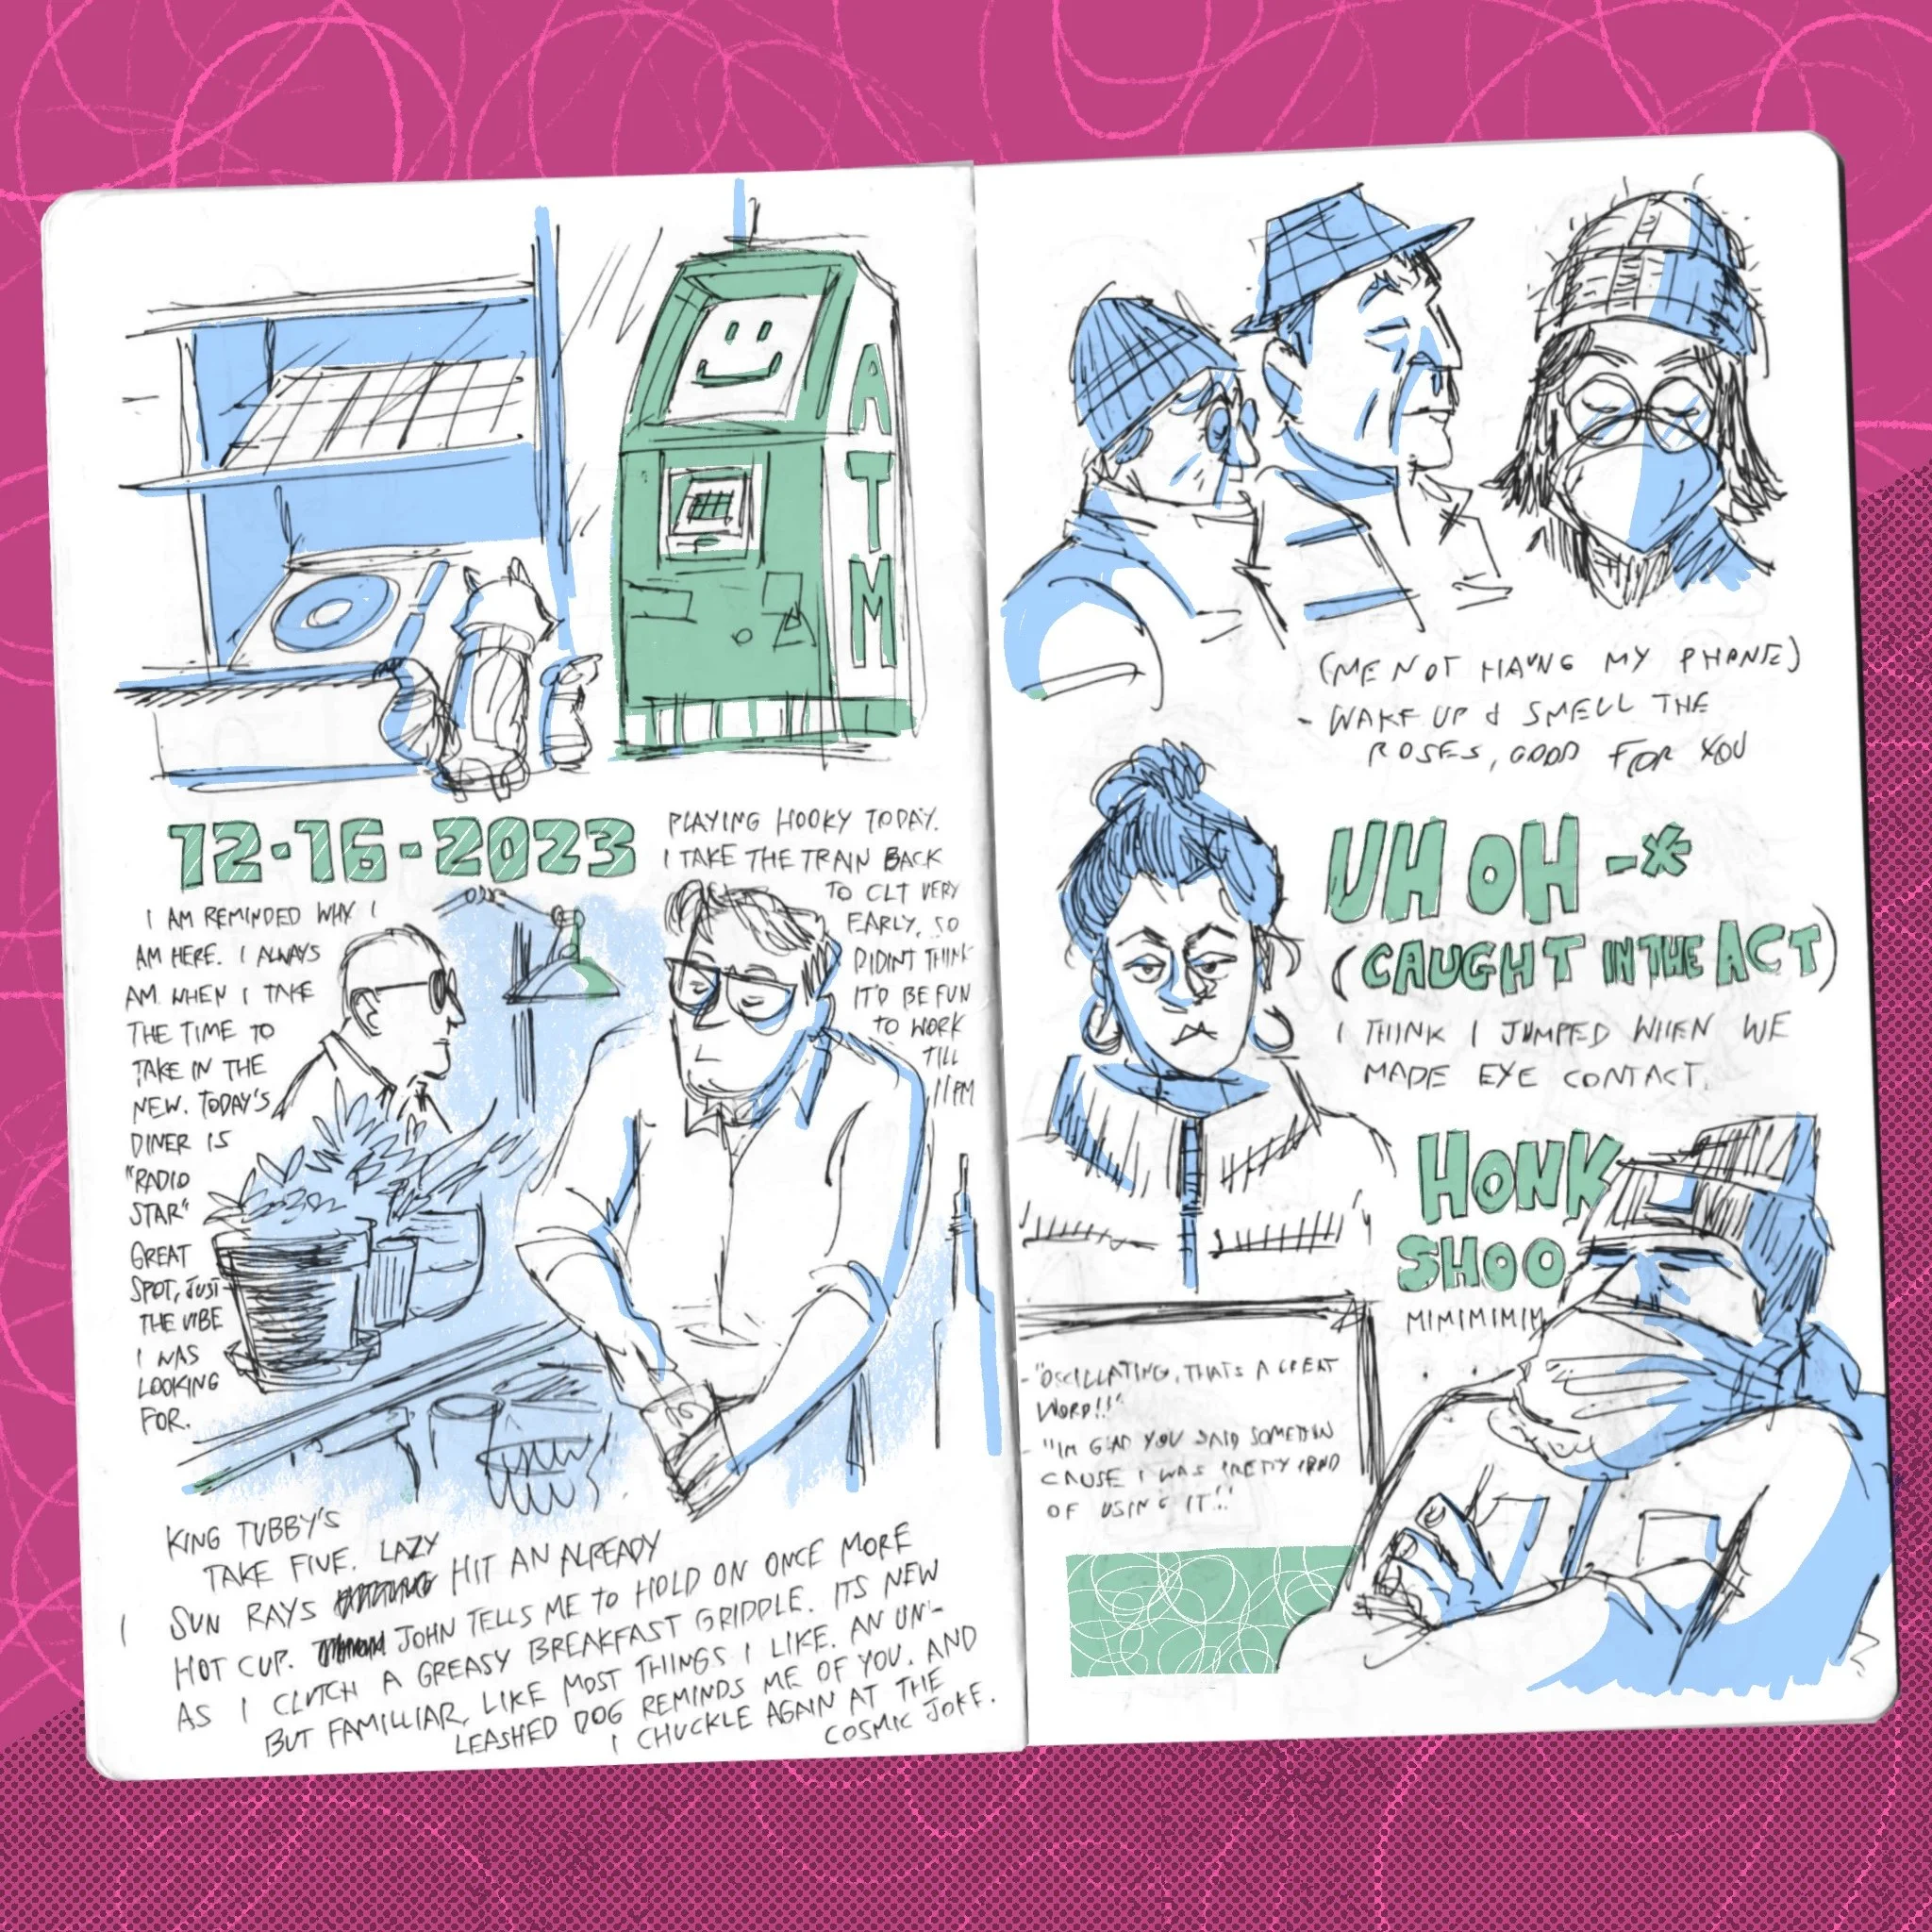 ATM
12-16-2023
PLAYING HOOKY TODAY.
I TAKE THE TRAIN BACK
TO CLT VERY
EARLY, SO
DIDNT THINK
IT'D BE FUN
TO WORK
TILL
11PM
I AM REMINDED WHY I
AM HERE. I ALWAYS
AM WHEN I TAKE
THE TIME TO
TAKE IN THE
NEW. TODAY'S
DINER IS
"RADIO
STAR"
GREAT
SPOT, JUST
THE VIBE
I WAS
LOOKING
FOR.
KING TUBBY'S
TAKE FIVE. LAZY
SUN RAYS HIT AN ALREADY
HOT CUP. JOHN TELLS ME TO HOLD ON ONCE MORE
AS I CLUTCH A GREASY BREAKFAST GRIDDLE. ITS NEW
BUT FAMILIAR, LIKE MOST THINGS I LIKE. AN UN-
LEASHED DOG REMINDS ME OF YOU. AND
I CHUCKLE AGAIN AT THE
COSMIC JOKE.
(ME NOT HAVING MY PHONE)
- WAKE UP & SMELL THE
ROSES, GOOD FOR YOU
UH OH -*
(CAUGHT IN THE ACT)
I THINK I JUMPED WHEN WE
MADE EYE CONTACT.
HONK
SHOO
MIMIMIMIM
- "OSCILLATING, THATS A GREAT
WORD!!"
- "IM GLAD YOU SAID SOMETHIN
CAUSE I WAS PRETTY PROUD
OF USING IT!!"